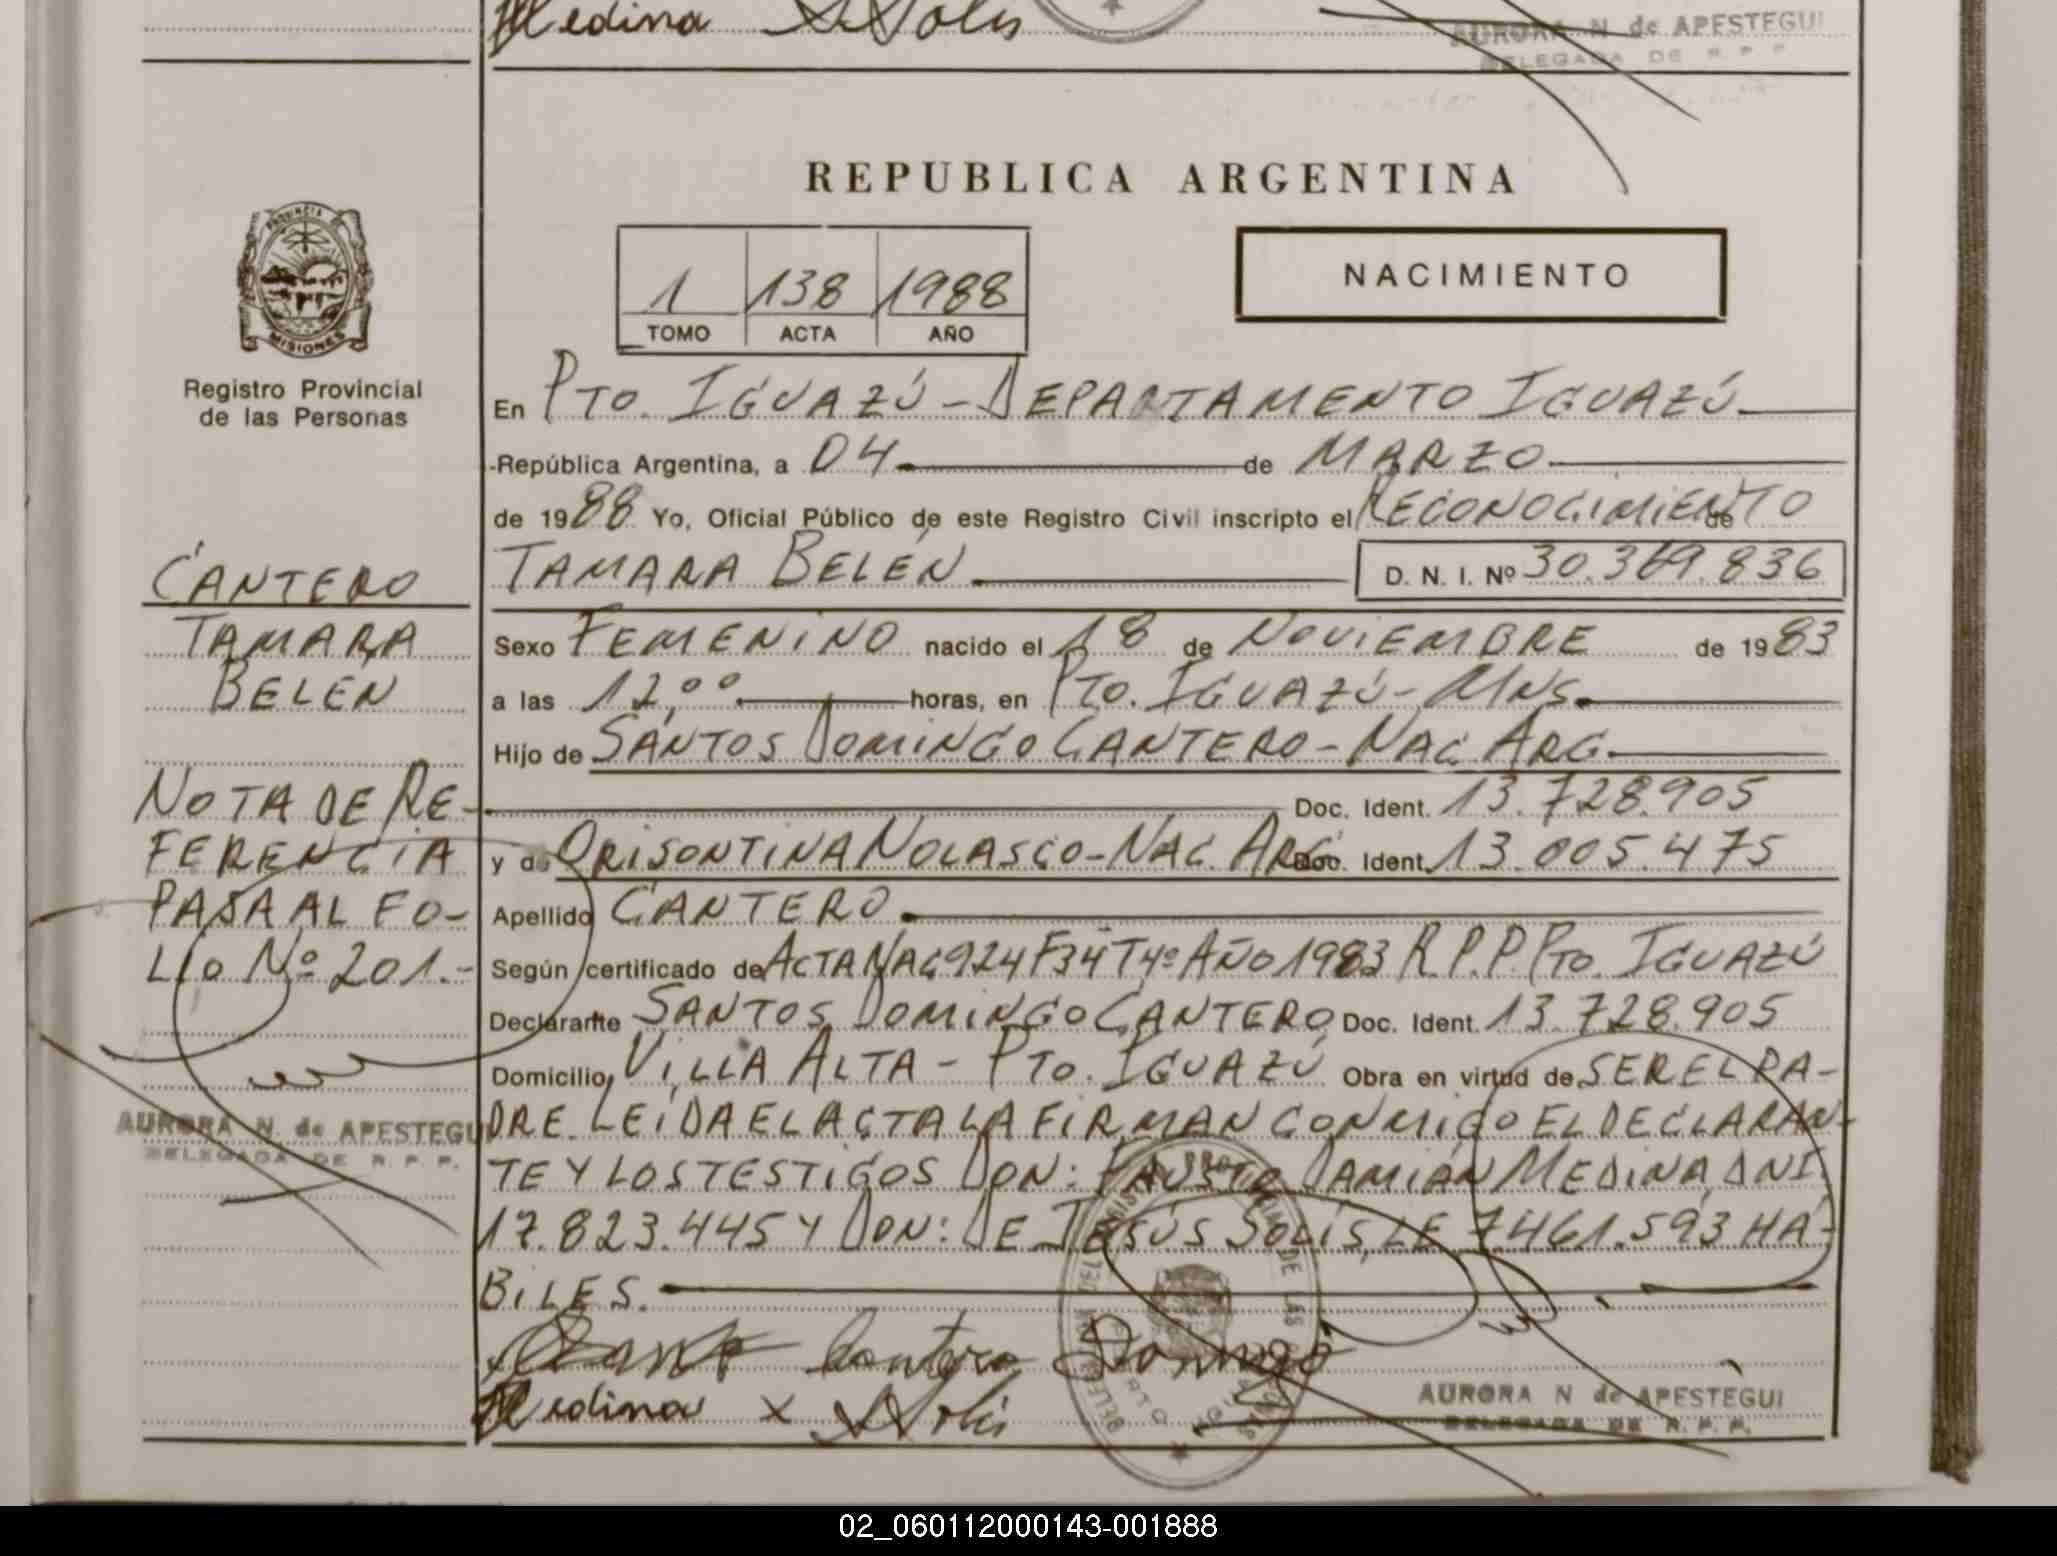 Medina Solis
AURORA N de APESTEGUI
DELEGADA DE R. P. P.
REPUBLICA ARGENTINA
PROVINCIA DE
MISIONES
Registro Provincial
de las Personas
1 138 1988
TOMO ACTA AÑO
NACIMIENTO
En PTO. IGUAZÚ - DEPARTAMENTO IGUAZÚ
República Argentina, a 04 de MARZO
de 1988 Yo, Oficial Público de este Registro Civil inscripto el RECONOCIMIENTO de
TAMARA BELÉN D. N. I. Nº 30.369.836
CANTERO
TAMARA
BELÉN
Sexo FEMENINO nacido el 18 de NOVIEMBRE de 1983
a las 12,00 horas, en PTO. IGUAZÚ - MNS.
Hijo de SANTOS DOMINGO CANTERO - NAC ARG.
Doc. Ident. 13.728.905
y de ORISONTINA NOLASCO - NAC. ARG Doc. Ident. 13.005.475
Apellido CANTERO
Según certificado de ACTA NAC 924 F34 T4º AÑO 1983 R.P.P. PTO. IGUAZÚ
Declarante SANTOS DOMINGO CANTERO Doc. Ident. 13.728.905
Domicilio VILLA ALTA - PTO. IGUAZÚ Obra en virtud de SER EL PA-
DRE. LEÍDA EL ACTA LA FIRMAN CONMIGO EL DECLARAN-
TE Y LOS TESTIGOS DON: FAUSTO DAMIÁN MEDINA, DNI
17.823.445 Y DON: DE JESÚS SOLÍS, LE 7461.593 HÁ-
BILES.
NOTA DE RE-
FERENCIA
PASA AL FO-
LIO Nº 201.-
AURORA N. de APESTEGUI
DELEGADA DE R. P. P.
Cantero Domingo
Medina x Solis
AURORA N de APESTEGUI
DELEGADA DE R. P. P.
02_060112000143-001888